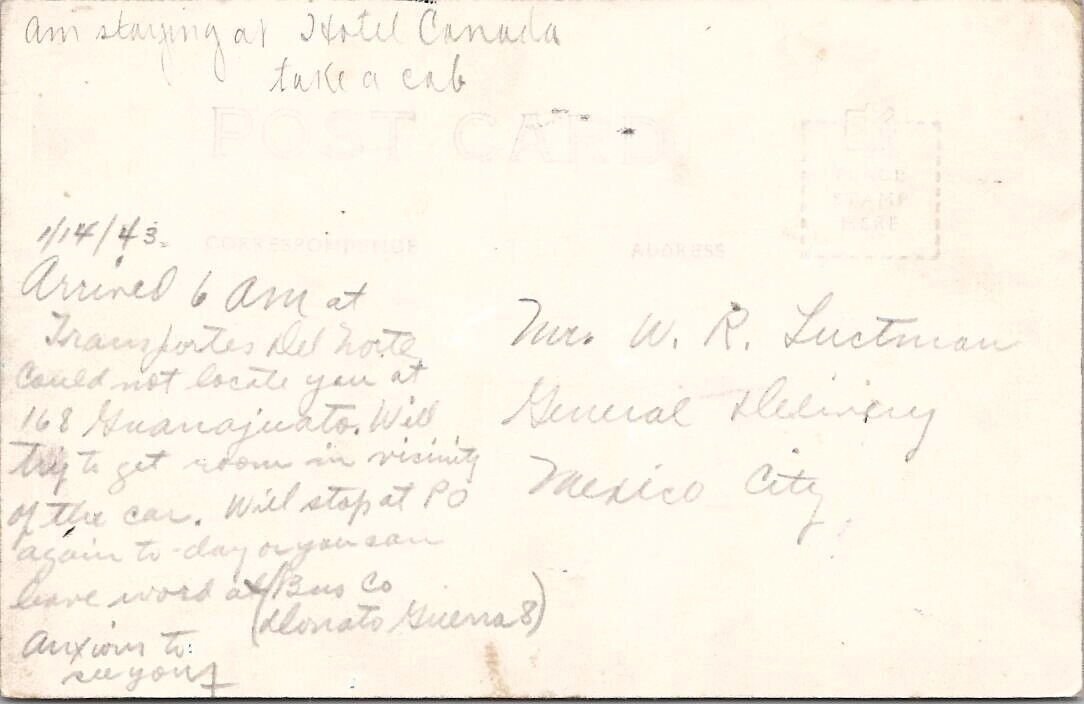 am staying at Hotel Canada
take a cab
POST CARD
PLACE
STAMP
HERE
1/14/43.
CORRESPONDENCE
ADDRESS
Arrived 6 am at
Transportes Del Norte
Could not locate you at
168 Guanajuato. Will
try to get room in vicinity
of the car. Will stop at PO
again to-day or you can
leave word at Bus Co
(Donato Guerra 8)
Anxious to
see you
W. R. Lustman
General Delivery
Mexico City